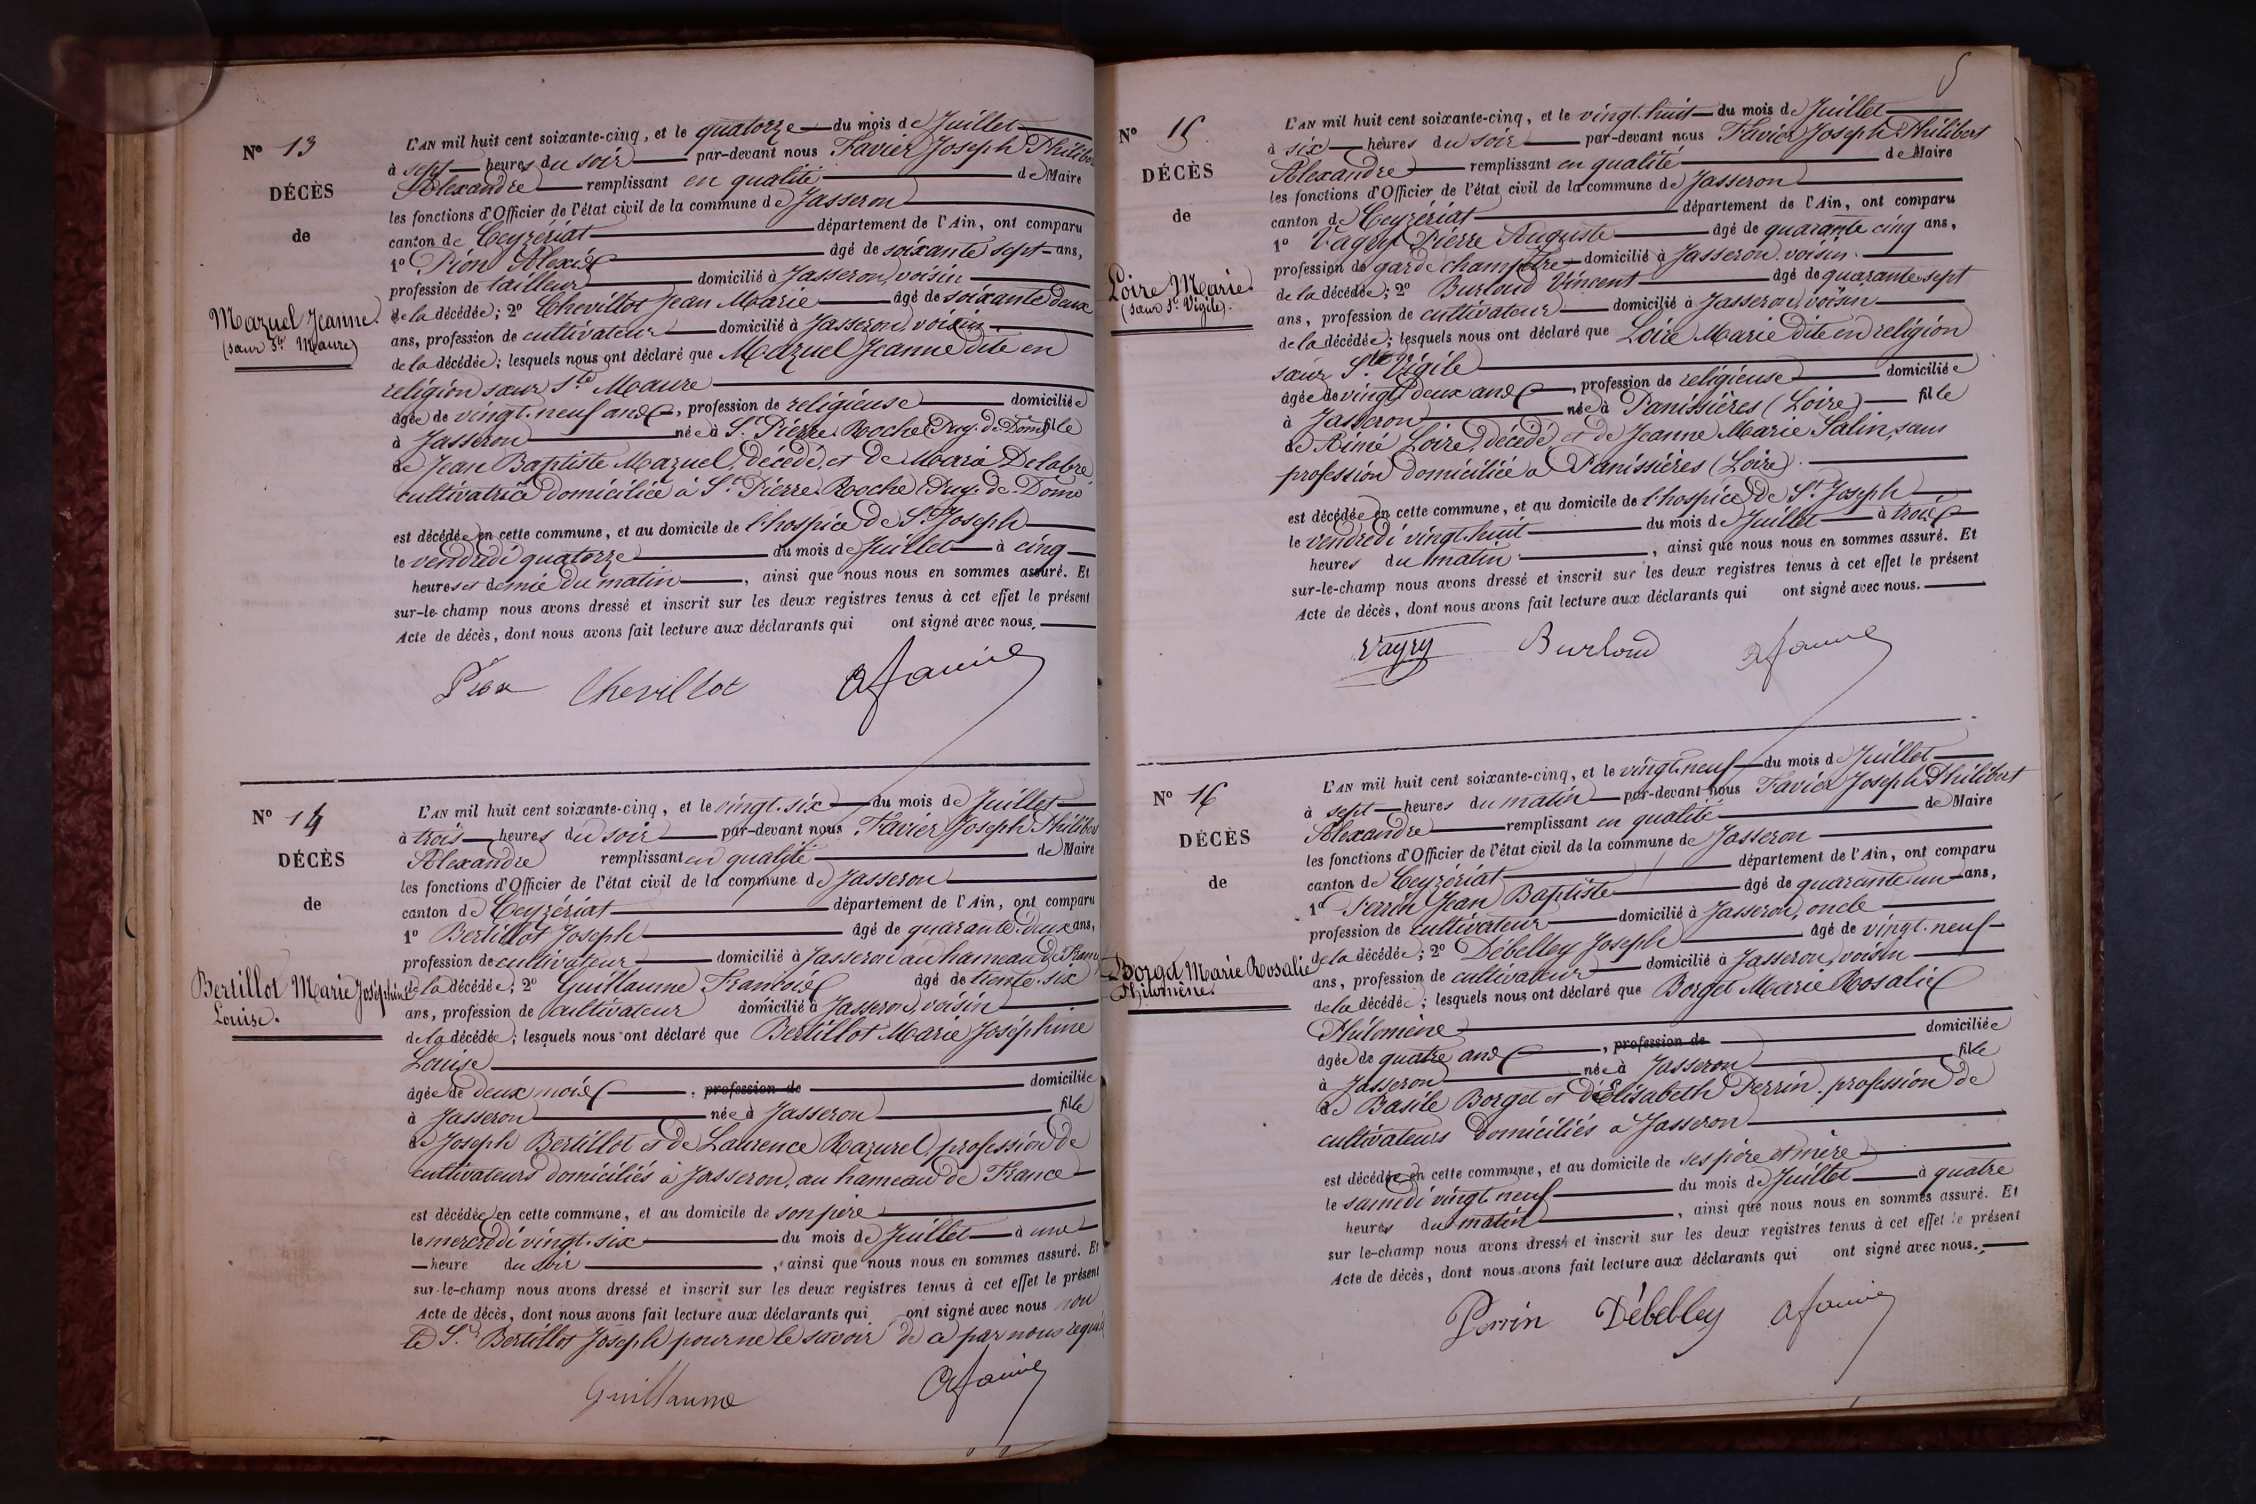 Nº 13
DÉCÈS
de
Mazuel Jeanne.
(sœur Ste Maure)
L'AN mil huit cent soixante-cinq, et le quatorze du mois de Juillet
à sept heures du soir par-devant nous Favier Joseph Philibert
Alexandre remplissant en qualité de Maire
les fonctions d'Officier de l'état civil de la commune de Jasseron
canton de Ceyzériat département de l'Ain, ont comparu
1º Pion Alexis âgé de soixante sept ans,
profession de tailleur domicilié à Jasseron, voisin
de la décédée; 2º Chevillot Jean Marie âgé de soixante deux
ans, profession de cultivateur domicilié à Jasseron, voisin
de la décédée; lesquels nous ont déclaré que Mazuel Jeanne dite en
religion sœur Ste Maure
âgée de vingt-neuf ans, profession de religieuse domiciliée
à Jasseron née à St Pierre-Roche (Puy-de-Dôme) fille
de Jean Baptiste Mazuel, décédé, et de Maria Delabre
cultivatrice domiciliée à St Pierre-Roche (Puy-de-Dome
est décédée en cette commune, et au domicile de l'hospice de St Joseph
le vendredi quatorze du mois de Juillet à cinq
heures et demie du matin, ainsi que nous nous en sommes assuré. Et
sur-le-champ nous avons dressé et inscrit sur les deux registres tenus à cet effet le présent
Acte de décès, dont nous avons fait lecture aux déclarants qui ont signé avec nous.
Pion Chevillot A favier
Nº 14
DÉCÈS
de
Bertillot Marie Joséphine
Louise.
L'AN mil huit cent soixante-cinq, et le vingt-six du mois de Juillet
à trois heures du soir par-devant nous Favier Joseph Philibert
Alexandre remplissant en qualité de Maire
les fonctions d'Officier de l'état civil de la commune de Jasseron
canton de Ceyzériat département de l'Ain, ont comparu
1º Bertillot Joseph âgé de quarante-deux ans,
profession de cultivateur domicilié à Jasseron au hameau de France
de la décédée; 2º Guillaume François âgé de trente-six
ans, profession de cultivateur domicilié à Jasseron, voisin
de la décédée; lesquels nous ont déclaré que Bertillot Marie Joséphine
Louise
âgée de deux mois, profession de domiciliée
à Jasseron née à Jasseron fille
de Joseph Bertillot et de Laurence Razurel, profession de
cultivateurs domiciliés à Jasseron, au hameau de France
est décédée en cette commune, et au domicile de son père
le mercredi vingt-six du mois de Juillet à une
heure du soir, ainsi que nous nous en sommes assuré. Et
sur-le-champ nous avons dressé et inscrit sur les deux registres tenus à cet effet le présent
Acte de décès, dont nous avons fait lecture aux déclarants qui ont signé avec nous non
le Sr Bertillot Joseph pour ne le savoir de ce par nous requis
Guillaume A favier
5
Nº 15
DÉCÈS
de
Loire Marie.
(sœur Ste Vigile).
L'AN mil huit cent soixante-cinq, et le vingt-huit du mois de Juillet
à six heures du soir par-devant nous Favier Joseph Philibert
Alexandre remplissant en qualité de Maire
les fonctions d'Officier de l'état civil de la commune de Jasseron
canton de Ceyzériat département de l'Ain, ont comparu
1º Vagry Pierre Auguste âgé de quarante cinq ans,
profession de garde champêtre domicilié à Jasseron voisin.
de la décédée; 2º Burloud Vincent âgé de quarante-sept
ans, profession de cultivateur domicilié à Jasseron, voisin
de la décédée; lesquels nous ont déclaré que Loire Marie dite en religion
sœur Ste Vigile
âgée de vingt-deux ans, profession de religieuse domiciliée
à Jasseron née à Panissières (Loire) fille
de Aimé Loire, décédé, et de Jeanne Marie Salin, sans
profession domiciliée à Panissières (Loire).
est décédée en cette commune, et au domicile de l'hospice de St Joseph
le vendredi vingt-huit du mois de Juillet à trois
heures du matin, ainsi que nous nous en sommes assuré. Et
sur-le-champ nous avons dressé et inscrit sur les deux registres tenus à cet effet le présent
Acte de décès, dont nous avons fait lecture aux déclarants qui ont signé avec nous.
Vagry Burloud A favier
Nº 16
DÉCÈS
de
Borget Marie Rosalie
Philomène.
L'AN mil huit cent soixante-cinq, et le vingt-neuf du mois de Juillet
à sept heures du matin par-devant nous Favier Joseph Philibert
Alexandre remplissant en qualité de Maire
les fonctions d'Officier de l'état civil de la commune de Jasseron
canton de Ceyzériat département de l'Ain, ont comparu
1º Perrin Jean Baptiste âgé de quarante un ans,
profession de cultivateur domicilié à Jasseron, oncle
de la décédée; 2º Débelley Joseph âgé de vingt-neuf
ans, profession de cultivateur domicilié à Jasseron, voisin
de la décédée; lesquels nous ont déclaré que Borget Marie Rosalie
Philomène
âgée de quatre ans, profession de domiciliée
à Jasseron née à Jasseron fille
de Basile Borget et d'Elisabeth Perrin, profession de
cultivateurs domiciliés à Jasseron
est décédée en cette commune, et au domicile de ses père et mère
le samedi vingt neuf du mois de Juillet à quatre
heures du matin, ainsi que nous nous en sommes assuré. Et
sur le-champ nous avons dressé et inscrit sur les deux registres tenus à cet effet le présent
Acte de décès, dont nous avons fait lecture aux déclarants qui ont signé avec nous.
Perrin Débelley A favier